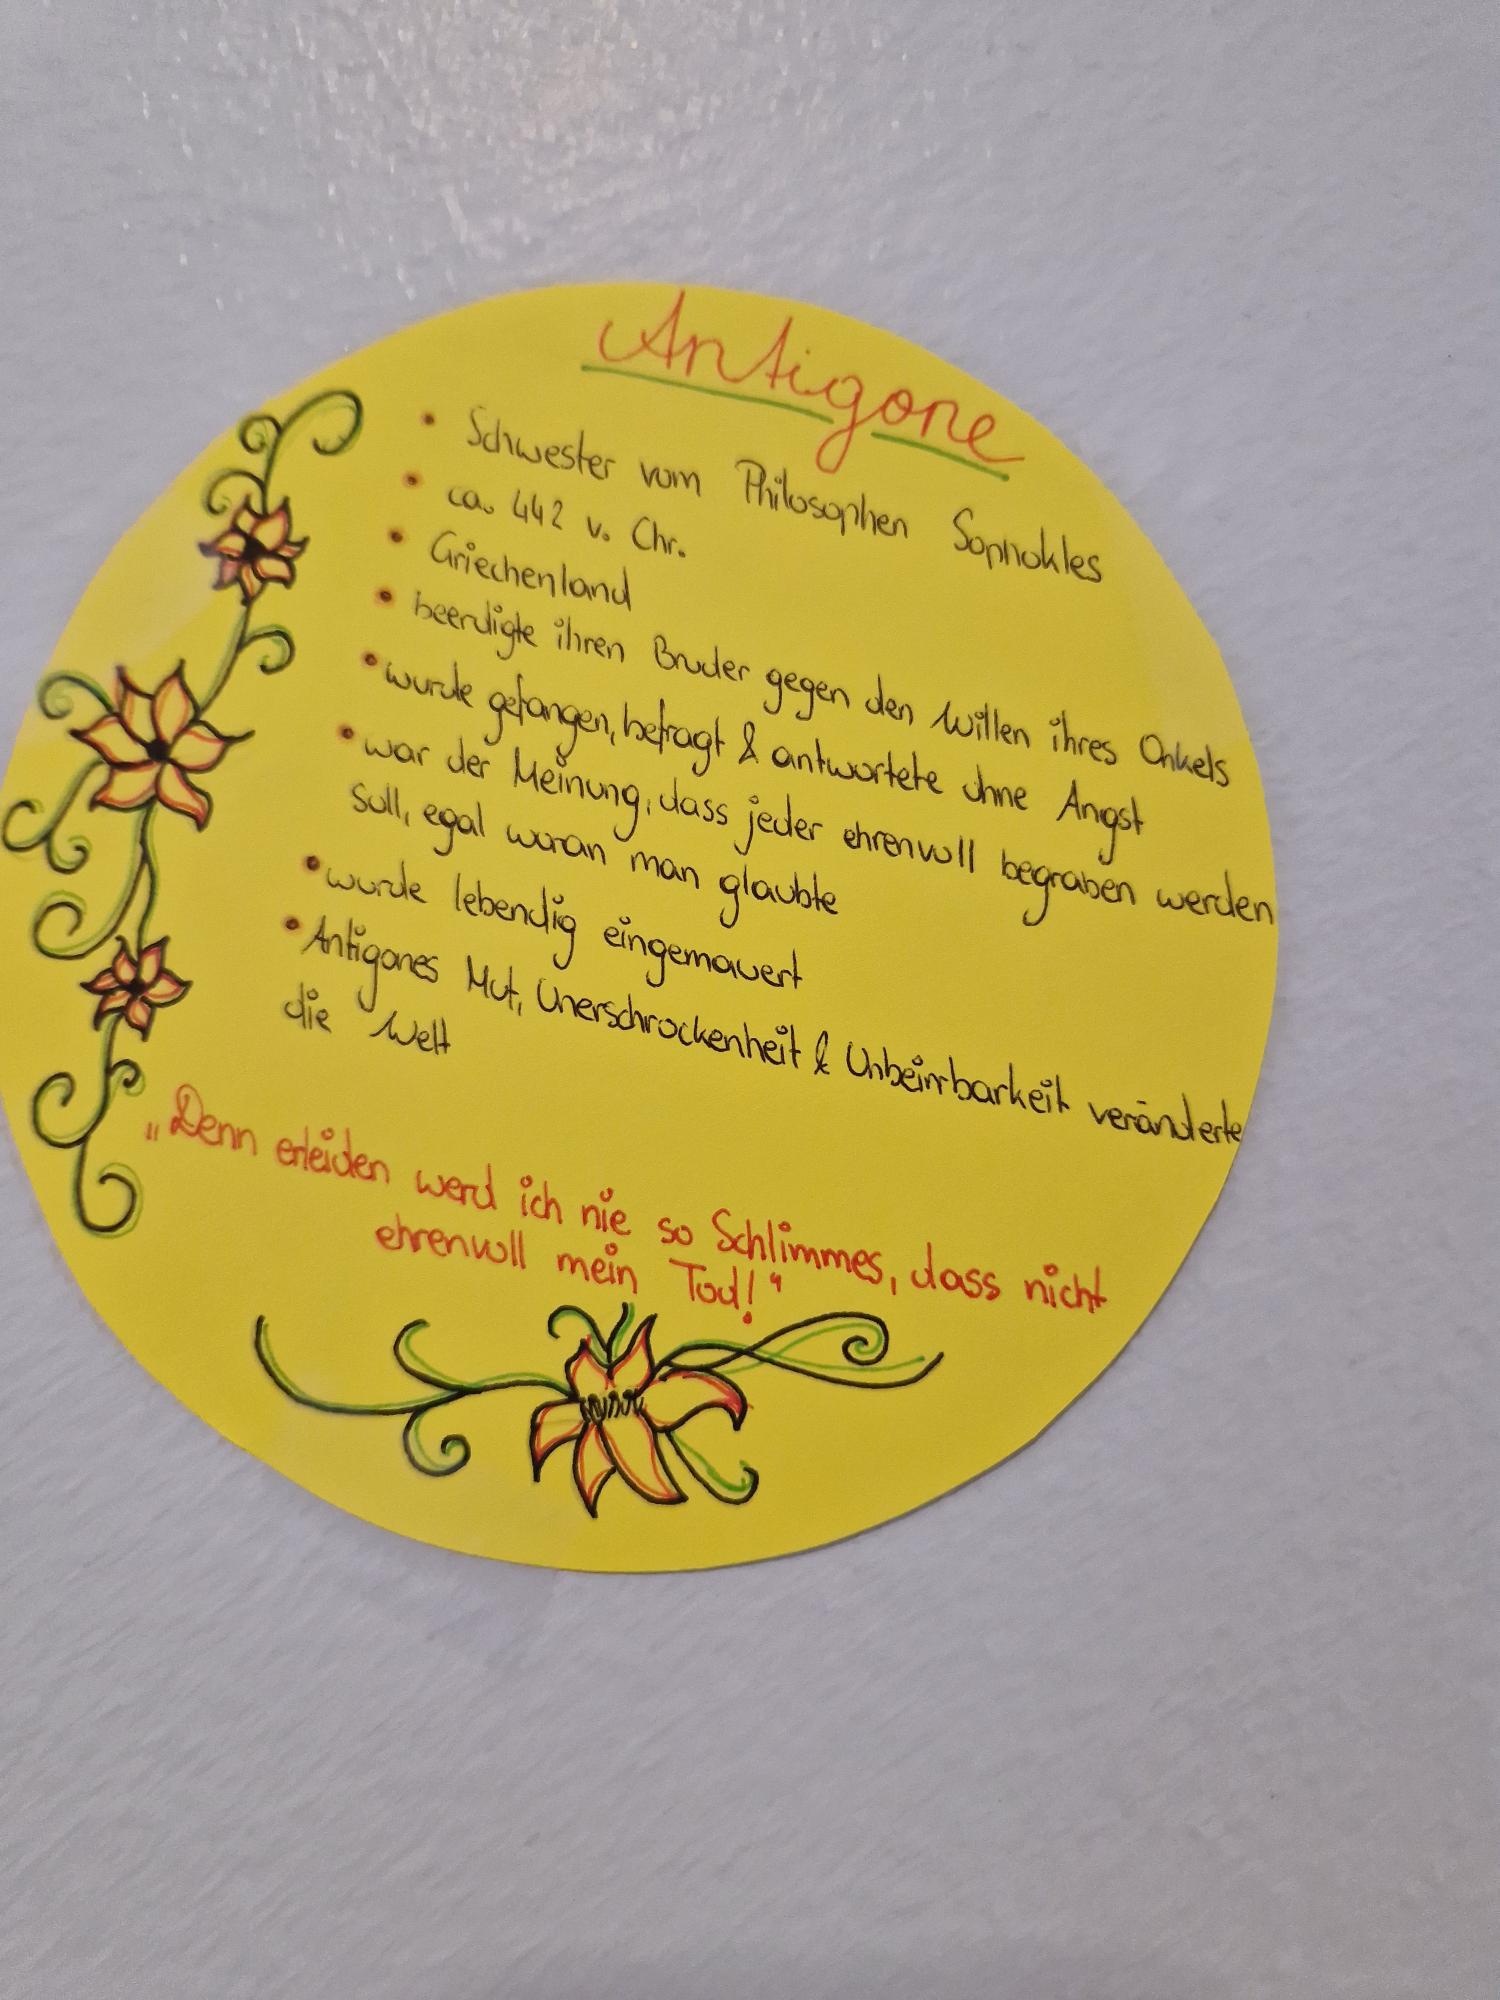 Antigone
• Schwester vom Philosophen Sophokles
• ca. 442 v. Chr.
• Griechenland
• beerdigte ihren Bruder gegen den Willen ihres Onkels
• wurde gefangen, befragt & antwortete ohne Angst
• war der Meinung, dass jeder ehrenvoll begraben werden
soll, egal woran man glaubte
• wurde lebendig eingemauert
• Antigones Mut, Unerschrockenheit & Unbeirrbarkeit veränderte
die Welt
„Denn erleiden werd ich nie so Schlimmes, dass nicht
ehrenvoll mein Tod!“